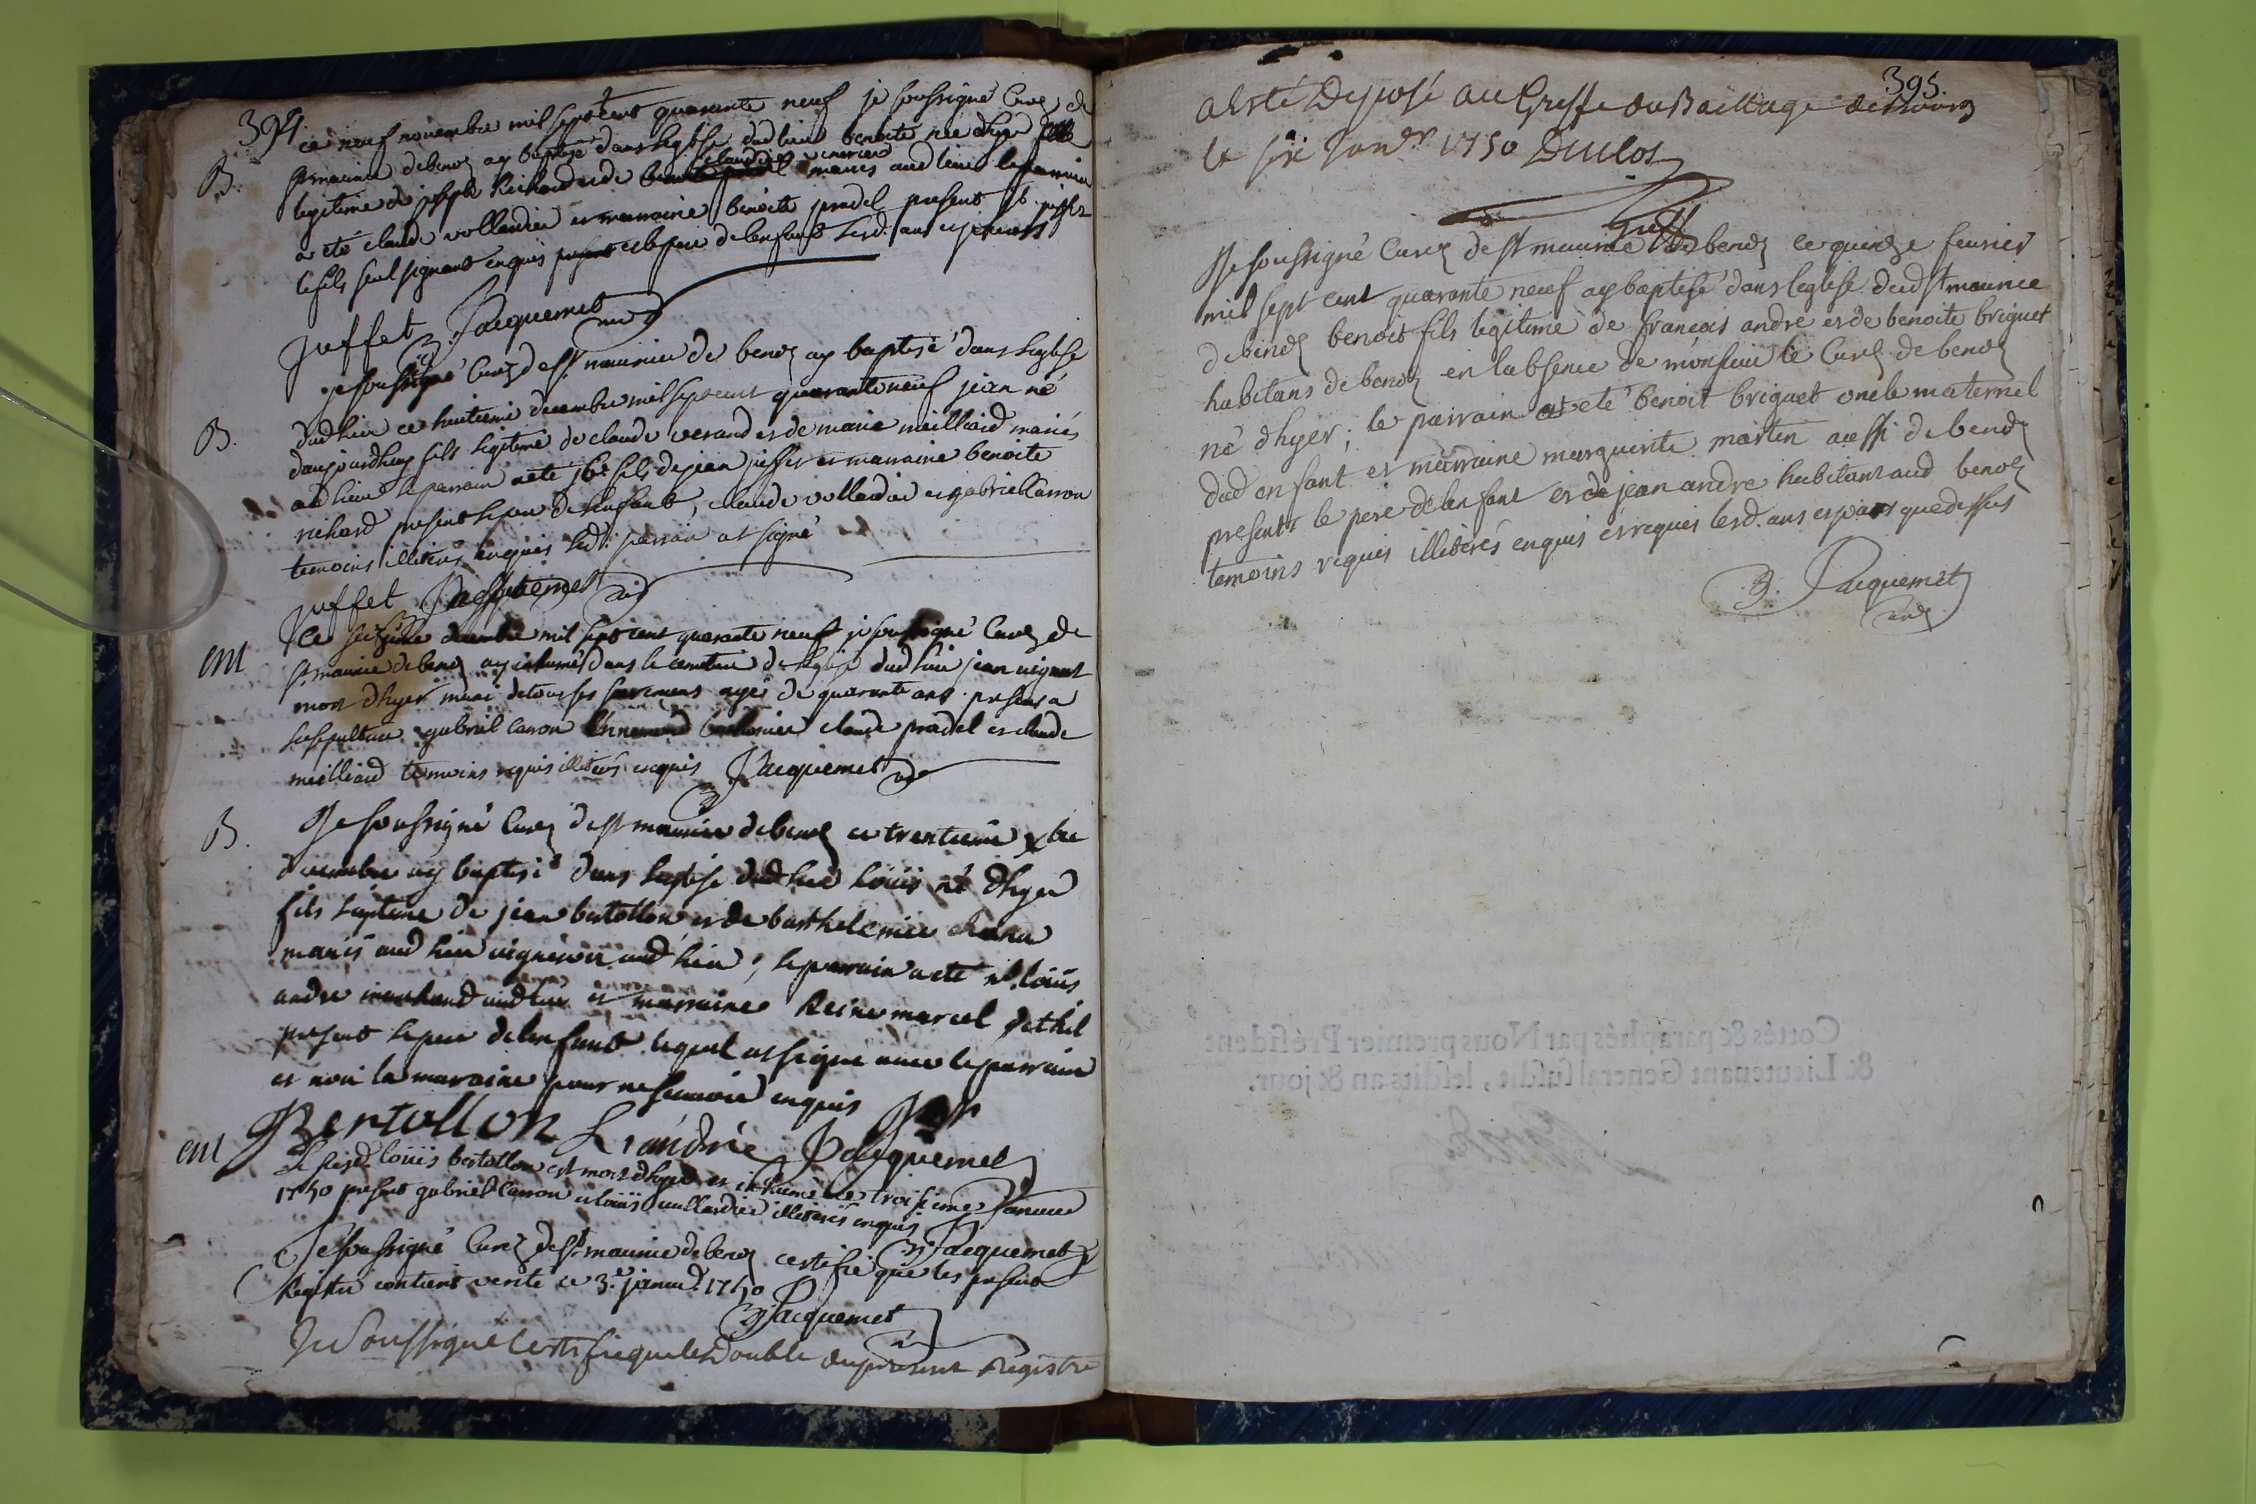 394
B.
ce neuf novembre mil sept cent quarante neuf je soussigné Curé de
st maurice de benoz ay baptisé dans leglise dud lieu benoite née dhyer fille
claudine mercier
legitime de joseph Richard et de mariés aud lieu le parrain
a eté claude vollandier et marraine benoite pradel present juffet
le fils seul signant enquis present le pere de lenfant lesd. ans et jours
Juffet B. Jacquemet curé
B.
je soussigné Curé de st maurice de benoz ay baptisé dans leglise
dud lieu ce huitieme decembre mil sept cent quarante neuf jean né
daujourdhuy fils legitime de claude verand et de marie meilliard mariés
aud lieu le parrain a eté fils de jean juffet et marraine benoite
richard present le pere de lenfant, claude vollandier et gabriel Carron
temoins illiterés enquis led. parrain a signé
Juffet Jacquemet curé
ent
Ce seizieme decembre mil sept cent quarante neuf je soussigné Curé de
st maurice de benoz ay inhumé dans le cemetiere de leglise dud lieu jean
mort dhyer muni de tous ses sacremens agé de quarante ans presens a
sa sepulture gabriel Carron claude pradel et claude
meilliard temoins requis illiterés enquis Jacquemet curé
B.
Je soussigné Curé de st maurice de benoz ce trentieme xbre
decembre ay baptisé dans leglise dud lieu loüis né dhyer
fils legitime de jean bertollon et de barthelemie
mariés aud lieu vigneron aud lieu; le parrain a eté sr. loüis
andre marchand aud lieu et marraine Reine marcel
present le pere de lenfant lequel a signé avec le parrain
et non la maraine pour ne scavoir enquis
Bertollon L andrié Jacquemet
ent
Le susd. loüis bertollon est mort dhyer et inhumé le troisieme Janvier
1750 present gabriel Carron et loüis vollandier illiterés enquis
B. Jacquemet
Je soussigné Curé de st maurice de benoz certifie que les present
Registre contient verité ce 3e. janvier 1750
B. Jacquemet
Je Soussigné Certifie que le Double du present Registre
395.
a Esté Deposé au Greffe du Bailliage de
le Janer 1750 Duclos
Greff
Je soussigné Curé de st maurice de benoz ce quinze fevrier
mil sept cent quarante neuf ay baptisé dans leglise dud st maurice
de benoz benoit fils legitime de francois andre et de benoite briguet
habitans de benoz en labsence de monsieur le Curé de benoz
né dhyer; le parrain a eté benoit briguet oncle maternel
dud enfant et marraine marguerite martin aussi de benoz
presents le pere de lenfant et de jean andre habitant aud benoz
temoins requis illiterés enquis et requis lesd. ans et jours que dessus
B. Jacquemet
curé
Cottés & paraphés par Nous premier Président
& Lieutenant General susdit, lesdits an & jour.